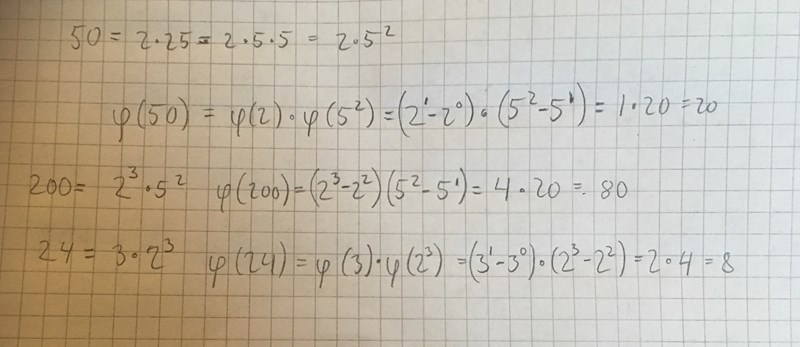 50 = 2·25 = 2·5·5 = 2·5²
φ(50) = φ(2)·φ(5²) = (2¹-2⁰)·(5²-5¹) = 1·20 = 20
200 = 2³·5² φ(200) = (2³-2²)(5²-5¹) = 4·20 = 80
24 = 3·2³ φ(24) = φ(3)·φ(2³) = (3¹-3⁰)·(2³-2²) = 2·4 = 8